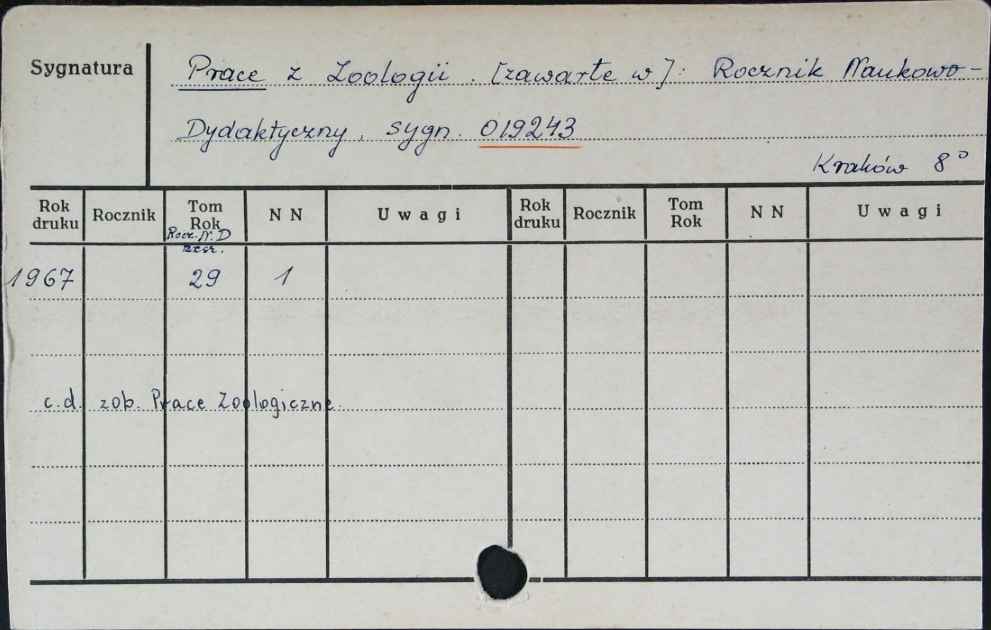 Sygnatura
Prace z Zoologii. [zawarte w]: Rocznik Naukowo-
Dydaktyczny, sygn. 019243
Kraków 8°
Rok druku Rocznik Tom Rok N N Uwagi Rok druku Rocznik Tom Rok N N Uwagi
Rocz. N. D
zesz.
1967 29 1
c.d. zob. Prace Zoologiczne.